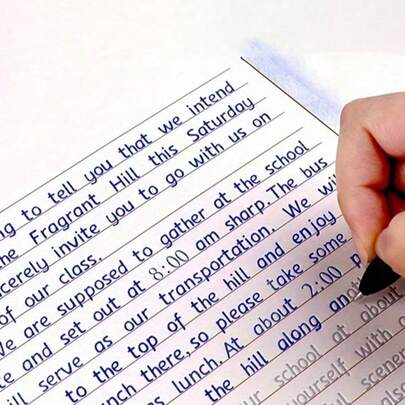 ng to tell you that we intend
he Fragrant Hill this Saturday
cerely invite you to go with us on
of our class.
We are supposed to gather at the school
te and set out at 8:00 am sharp. The bus
ill serve as our transportation. We wi
to the top of the hill and enjoy
unch there, so please take some
s lunch. At about 2:00 p
the hill along anot
school at about
yourself with
scener